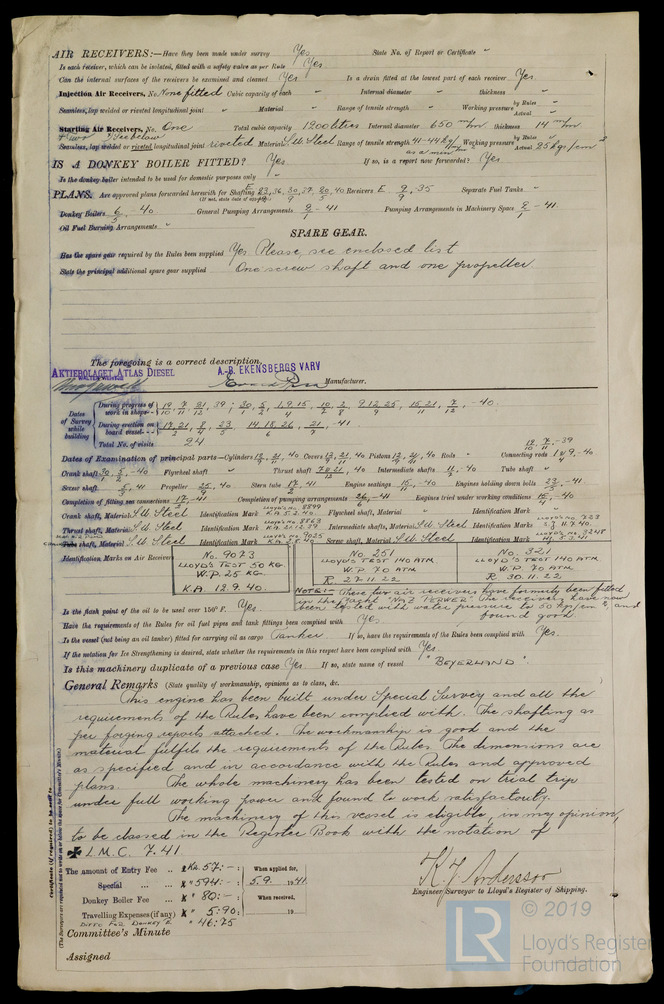 AIR RECEIVERS:—Have they been made under survey Yes State No. of Report or Certificate "
Is each receiver, which can be isolated, fitted with a safety valve as per Rule Yes
Can the internal surfaces of the receivers be examined and cleaned Yes Is a drain fitted at the lowest part of each receiver Yes.
Injection Air Receivers, No. None fitted Cubic capacity of each " Internal diameter " thickness "
Seamless, lap welded or riveted longitudinal joint " Material " Range of tensile strength " Working pressure by Rules " Actual "
Starting Air Receivers, No. One Total cubic capacity 1200 litres Internal diameter 650 m/m thickness 14 m/m
+ two " See below
Seamless, lap welded or riveted longitudinal joint riveted Material S.M. Steel Range of tensile strength 41-44 kg/m/m² Working pressure by Rules " Actual 25 kgs/cm²
IS A DONKEY BOILER FITTED? Yes. If so, is a report now forwarded? Yes.
Is the donkey boiler intended to be used for domestic purposes only "
PLANS. Are approved plans forwarded herewith for Shafting Receivers E Separate Fuel Tanks "
(If not, state date of approval)
Donkey Boilers 6/5 40 General Pumping Arrangements 2/1 - 41 Pumping Arrangements in Machinery Space 2/1 - 41
Oil Fuel Burning Arrangements "
SPARE GEAR.
Has the spare gear required by the Rules been supplied Yes. Please, see enclosed list
State the principal additional spare gear supplied One screw shaft and one propeller
The foregoing is a correct description,
AKTIEBOLAGET ATLAS DIESEL A.-B. EKENSBERGS VARV
Manufacturer.
Dates of Survey while building
During progress of work in shops--
During erection on board vessel---
Total No. of visits 24
Dates of Examination of principal parts—Cylinders Covers Pistons Rods " Connecting rods
Crank shaft Flywheel shaft " Thrust shaft Intermediate shafts Tube shaft "
Screw shaft 5/3 41 Propeller 25/9 40 Stern tube 17/2 41 Engine seatings 15/11 -40 Engines holding down bolts 23/5 -41
Completion of fitting sea connections 17/2 41 Completion of pumping arrangements 26/6 -41 Engines tried under working conditions
Crank shaft, Material S.M. Steel Identification Mark Lloyd's No. 8899 K.A. 5.2.40. Flywheel shaft, Material " Identification Mark "
Thrust shaft, Material S.M. Steel Identification Mark Lloyd's No. 8863 Intermediate shafts, Material S.M. Steel Identification Marks Lloyd's No. 723
Tube shaft, Material S.M. Steel Identification Mark Lloyd's No. 9025 Screw shaft, Material S.M. Steel Identification Mark
Identification Marks on Air Receivers
No. 9073
LLOYD'S TEST 50 KG.
W.P. 25 KG.
K.A. 12.9.40.
No. 251
LLOYD'S TEST 140 ATM.
W.P. 70 ATM.
R. 27.11.22
No. 321
LLOYD'S TEST 140 ATM.
W.P. 70 ATM.
R. 30.11.22
NOTE:- These two air receivers have formerly been fitted
in the yacht The receivers have now
been tested with water pressure to 50 kg/cm², and
found good.
Is the flash point of the oil to be used over 150° F. Yes.
Have the requirements of the Rules for oil fuel pipes and tank fittings been complied with Yes
Is the vessel (not being an oil tanker) fitted for carrying oil as cargo Tanker If so, have the requirements of the Rules been complied with Yes.
If the notation for Ice Strengthening is desired, state whether the requirements in this respect have been complied with Yes.
Is this machinery duplicate of a previous case Yes. If so, state name of vessel "BEYERLAND".
General Remarks (State quality of workmanship, opinions as to class, &c.
This engine has been built under Special Survey and all the
requirements of the Rules have been complied with. The shafting as
per forging reports attached. The workmanship is good and the
material fulfils the requirements of the Rules. The dimensions are
as specified and in accordance with the Rules and approved
plans. The whole machinery has been tested on trial trip
under full working power and found to work satisfactorily.
The machinery of this vessel is eligible, in my opinion,
to be classed in the Register Book with the notation of
✠ L.M.C. 7.41
The amount of Entry Fee .. Kr. 57:- : When applied for,
Special ... ... " 594:- : 5.9. 1941
Donkey Boiler Fee ... " 80:- : When received,
Travelling Expenses (if any) " 5:90: 19
" 46:75
K. F. Andersson
Engineer Surveyor to Lloyd's Register of Shipping.
Committee's Minute
Assigned
Certificate (if required) to be sent to
(The Surveyors are requested not to write on or below the space for Committee's Minute.)
LR
© 2019
Lloyd's Register
Foundation